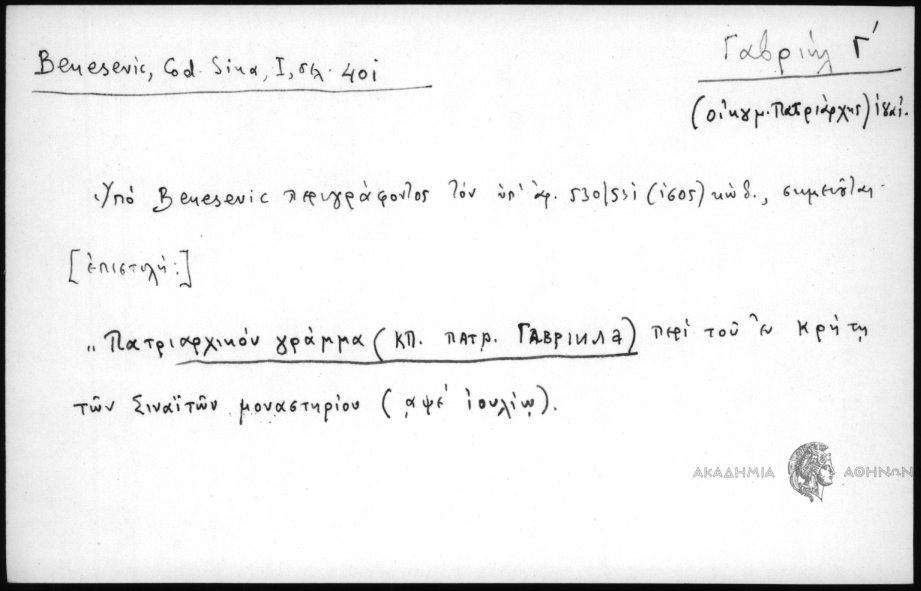 Benesevic, Cod. Sina, I, σελ. 401
Γαβριήλ Γ´
(οἰκουμ. Πατριάρχης)
Ὑπό Benesevic περιγράφοντος τόν ὑπ' ἀρ. 530/531 (1605) κώδ., σημειοῦται.
[ἐπιστολή:]
„ Πατριαρχικόν γράμμα (ΚΠ. ΠΑΤΡ. ΓΑΒΡΙΗΛ) περί τοῦ ἐν Κρήτῃ
τῶν Σιναϊτῶν μοναστηρίου (͵αψε´ ἰουλίῳ).
ΑΚΑΔΗΜΙΑ ΑΘΗΝΩΝ